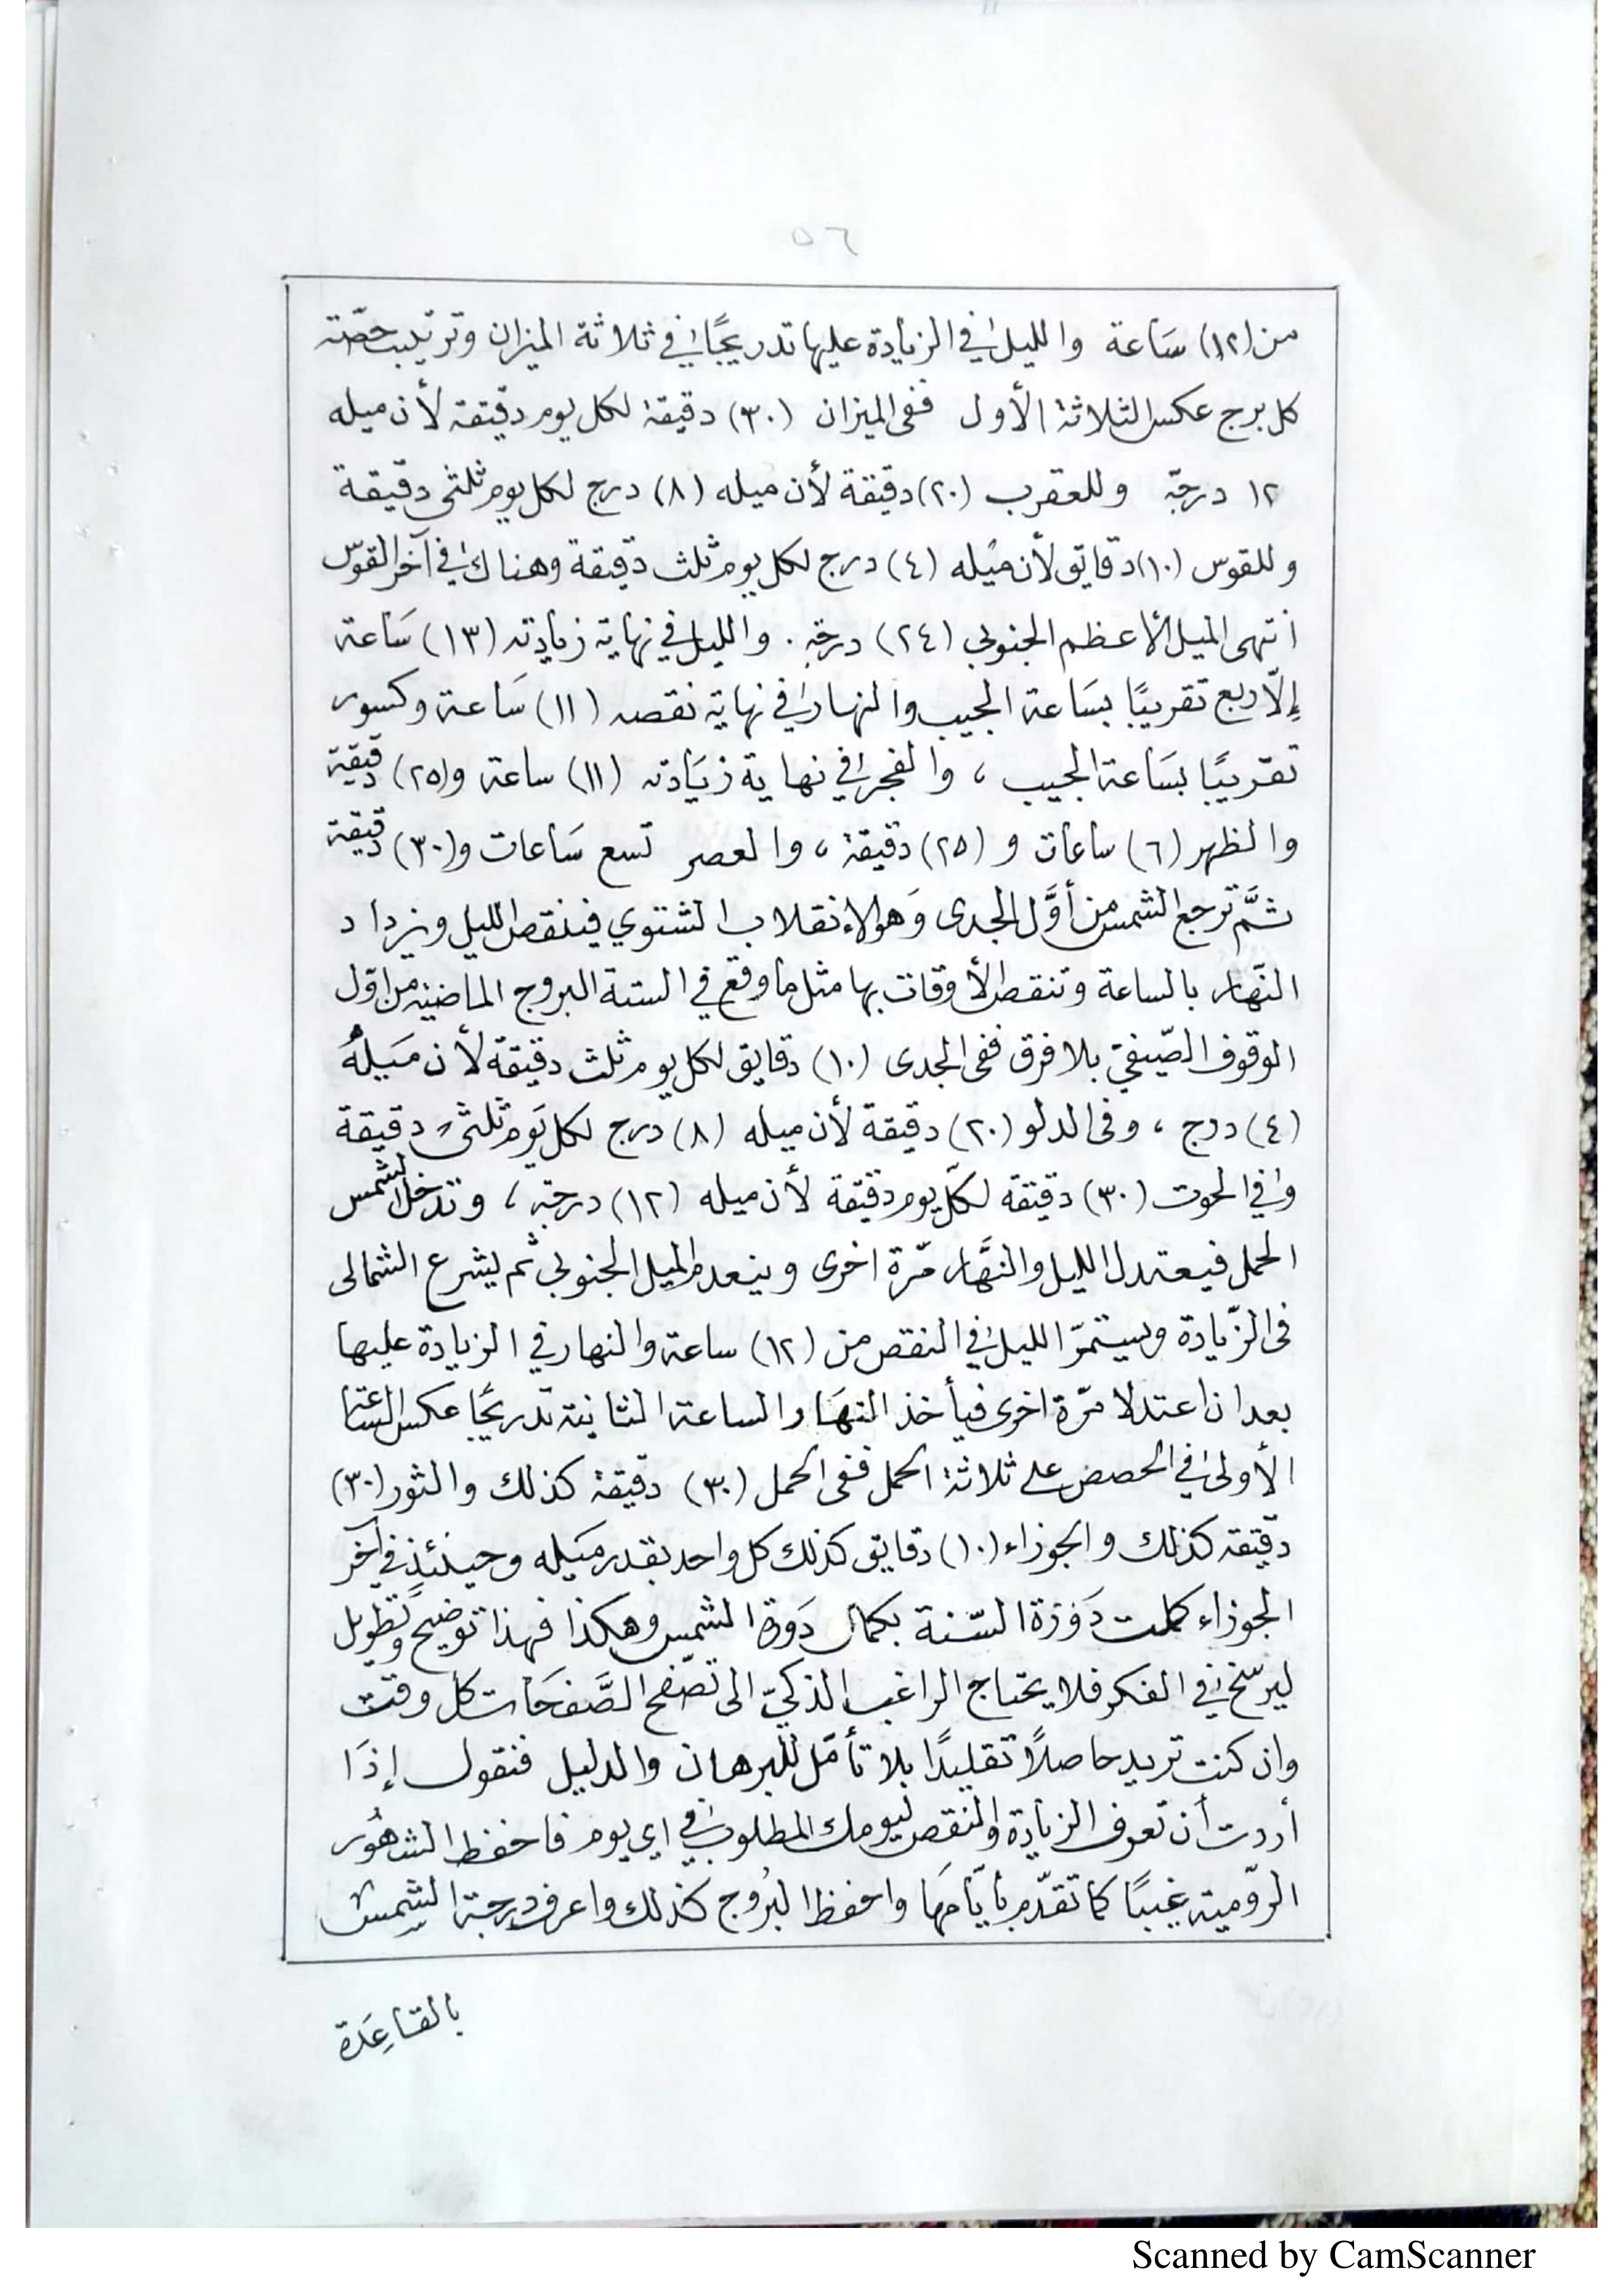 ٥٦
من (١٢) سَاعة والليل في الزيادة عليها تدريجًا في ثلاثة الميزان وترتيب حصّته
كل برج عكس الثلاثة الأول ففى الميزان (٣٠) دقيقة لكل يوم دقيقة لأن ميله
١٢ درجة وللعقرب (٢٠) دقيقة لأن ميله (٨) درج لكل يوم ثلثى دقيقة
وللقوس (١٠) دقايق لأن ميله (٤) درج لكل يوم ثلث دقيقة وهناك في آخر القوس
انتهى الميل الأعظم الجنوبي (٢٤) درجة . والليل في نهاية زيادته (١٣) سَاعة
إلّا ربع تقريبًا بسَاعة الجيب والنهار في نهاية نقصه (١١) سَاعة وكسور
تقريبًا بسَاعة الجيب ، والفجر في نهاية زيَادته (١١) ساعة و(٢٥) دقيقة
والظهر (٦) ساعات و (٢٥) دقيقة ، والعصر تسع سَاعات و(٣٠) دقيقة
ثمَّ ترجع الشمس من أوَّل الجدى وَهو الإنقلاب الشتوي فينقص الليل ويزداد
النّهار بالساعة وتنقص الأوقات بها مثل ما وقع في الستة البروج الماضية من اوّل
الوقوف الصّيفيّ بلا فرق ففى الجدى (١٠) دقايق لكل يوم ثلث دقيقة لأن مَيلهُ
(٤) درج ، وفى الدلو (٢٠) دقيقة لأن ميله (٨) درج لكل يَوم ثلثى دقيقة
وفي الحوت (٣٠) دقيقة لكلّ يوم دقيقة لأن ميله (١٢) درجة ، وتدخل الشمس
الحمل فيعتدل الليل والنَّهار مّرة اخرى وينعدم الميل الجنوبي ثم يشرع الشمالى
فى الزّيادة ويستمرّ الليل في النقص من (١٢) ساعة والنهار في الزيادة عليها
بعد ان اعتدلا مّرة اخرى فيأخذ النهَار الساعة الثانية تدريجًا عكس الساعة
الأولى في الحصص على ثلاثة الحمل ففى الحمل (٣٠) دقيقة كذلك والثور (٣٠)
دقيقة كذلك والجوزاء (١٠) دقايق كذلك كل واحد بقدر مَيله وحينئذٍ في آخر
الجوزاء كملت دَورَة السّنة بكمال دَورة الشمس وهكذا فهذا توضيح وتطويل
ليرسخ في الفكر فلا يحتاج الراغب الذكيّ الى تصّفح الصَّفحَات كل وقت
وان كنت تريد حاصلاً تقليدًا بلا تأمّل للبرهان والدليل فنقول إذَا
أردت أن تعرف الزيادة والنقص ليومك المطلوب في اي يوم فاحفظ الشهُور
الرّومية غيبًا كما تقدّم بأيّامهَا واحفظ البُروج كذلك واعرف درجة الشمس
بالقاعِدَة
Scanned by CamScanner